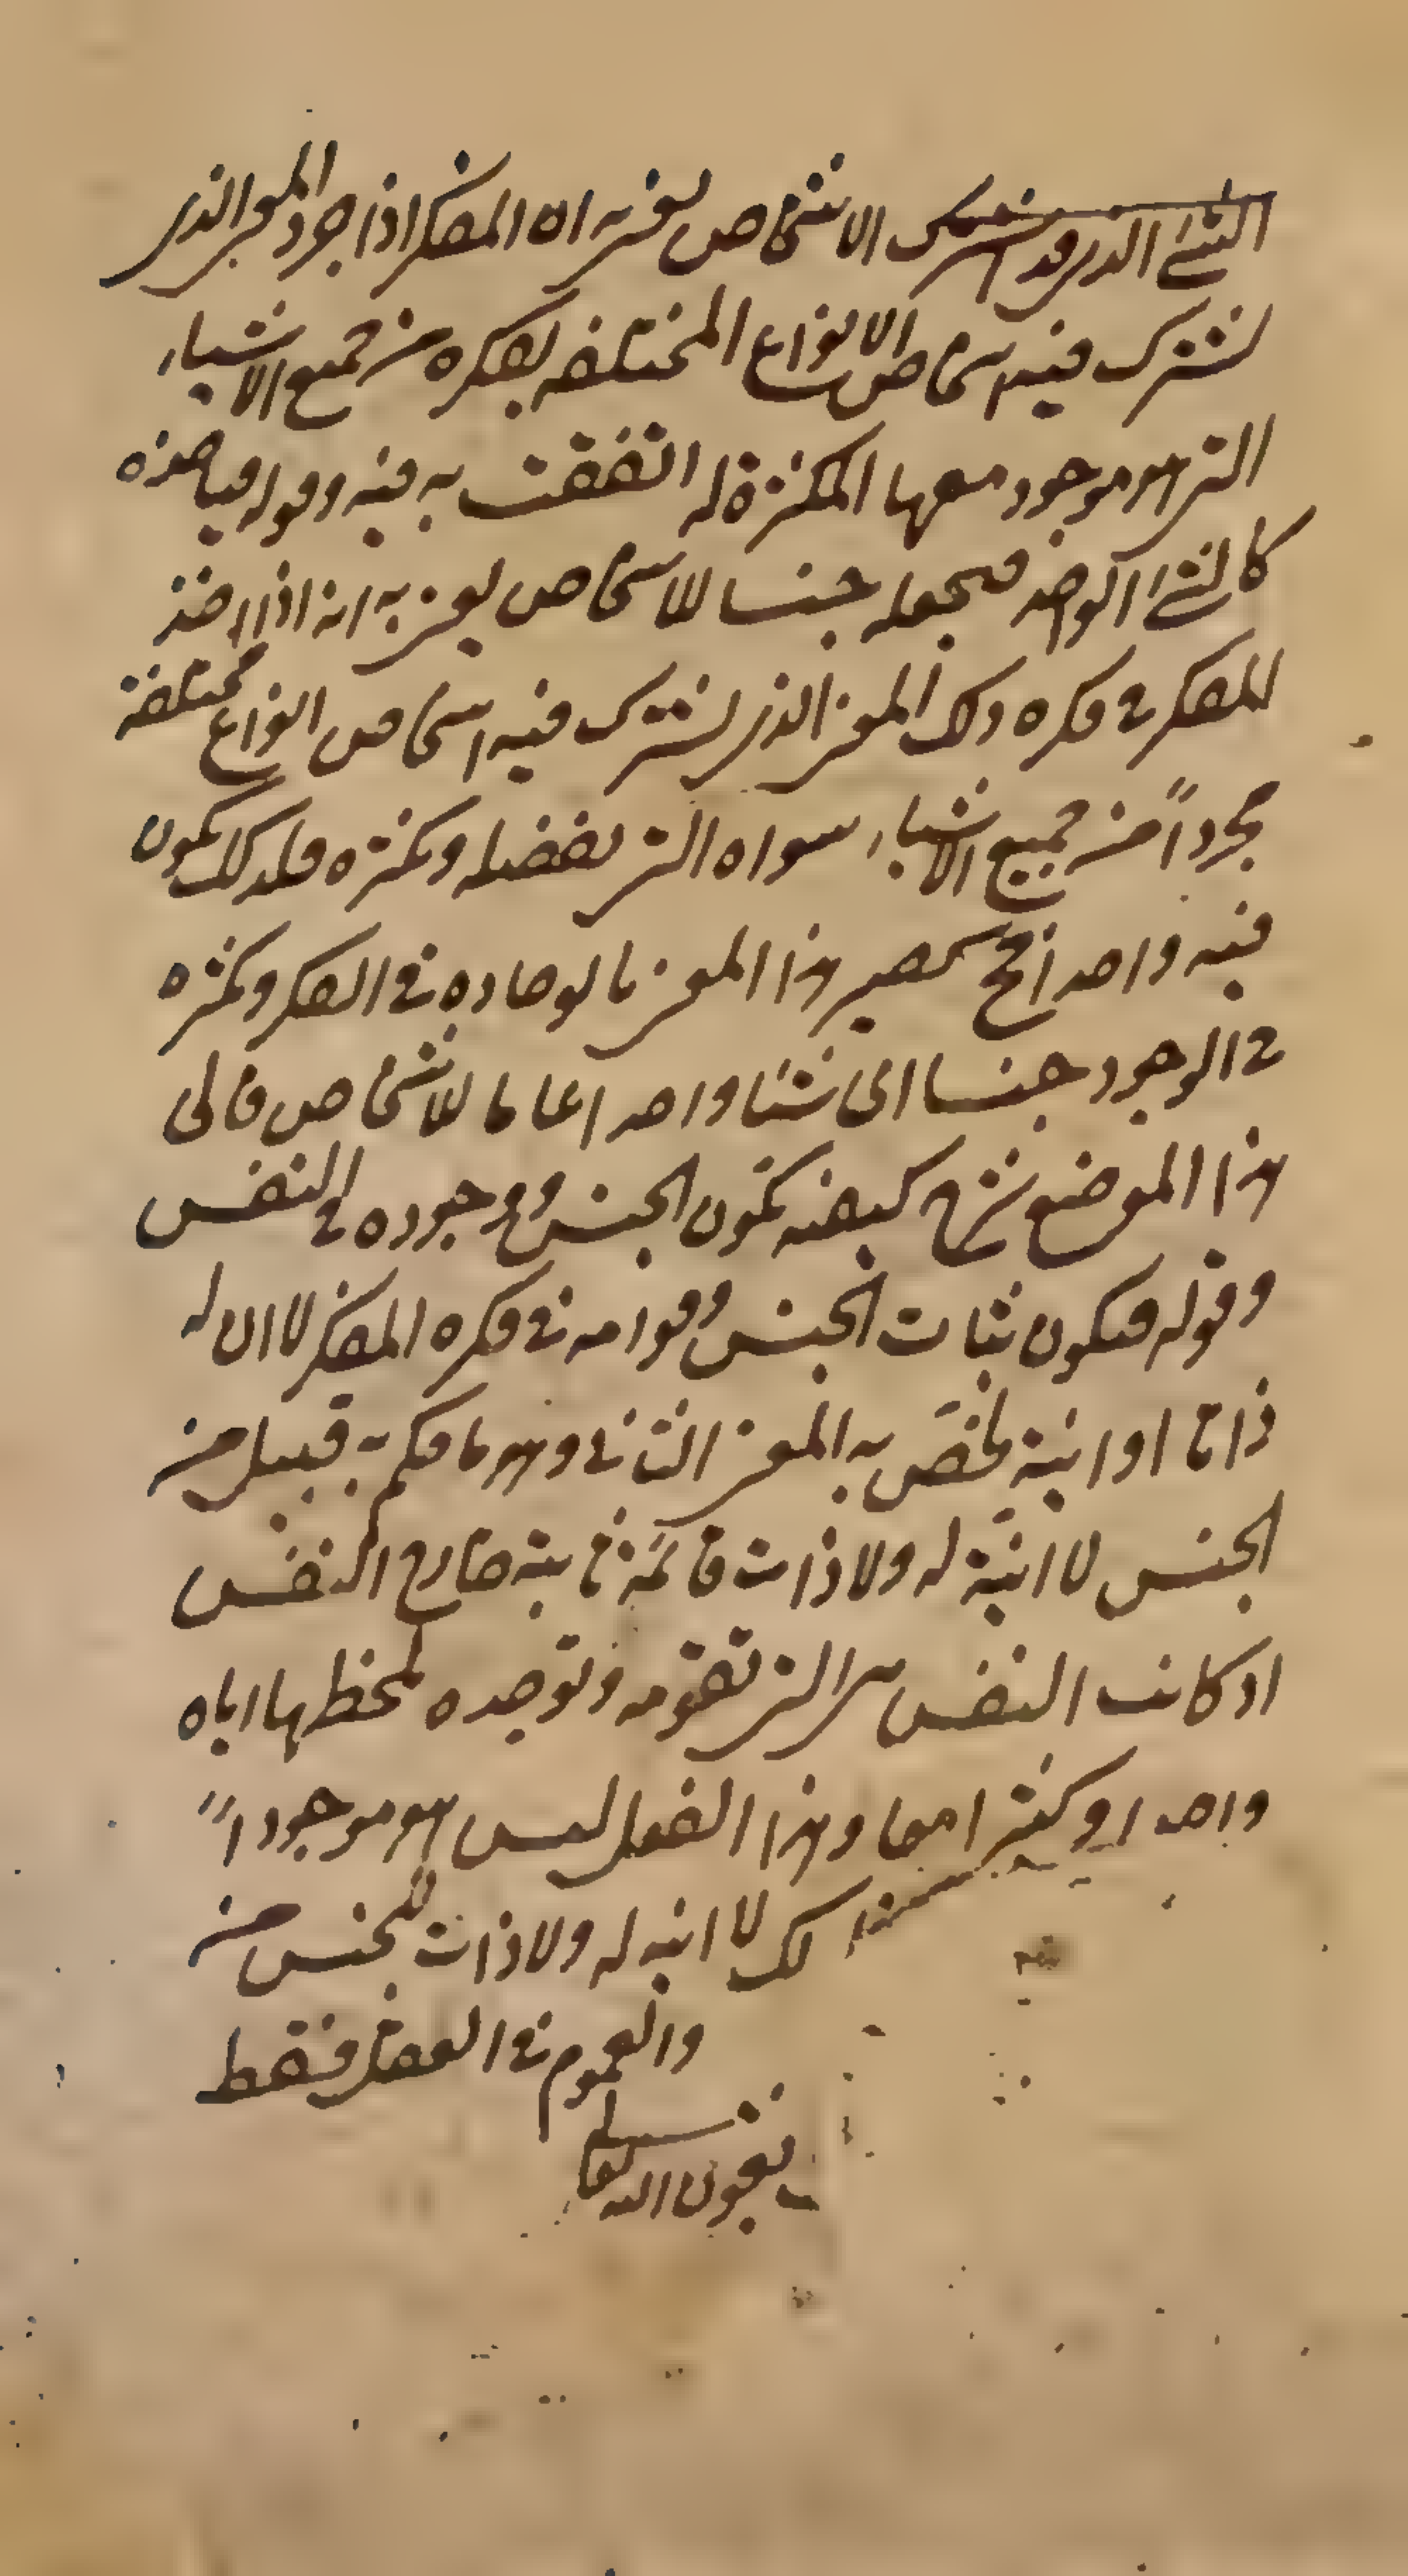 الشئ الذى قد اشترك الاشخاص يعنى به ان المفكر اذا جرد المعنى الذى
تشترك فيه اشخاص الانواع المختلفه بفكره من جميع الاشياء
التى هو موجود معها المكثرة له اتفقت به فيه وقوله فياخذه
كالشئ الواحد فيجعله جنسا للاشخاص يعنى به انه اذا اخذ
المفكر فى فكره ذلك المعنى الذى يشترك فيه اشخاص انواع مختلفة
مجرداً من جميع الاشياء سواه التى تفصله وتكثره فلذلك يكون
فيه واحدا فح يصير هذا المعنى بالوحاده فى الفكر وتكثره
فى الوجود جنسا اى شئا واحدا عاما للاشخاص فالى
هذا الموضع شرح كيفيه تكون الجنس ووجوده فى النفس
وقوله فيكون ثبات الجنس وقوامه فى فكره المفكر لا ان له
ذاتا او انية يختص به المعنى الثانى وهو ما حكم به قبيل من
الجنس لا انية له ولا ذات قائمة ثابتة خارج النفس
اذ كانت النفس هى التى تقومه وتوحده بلحظها اياه
واحدا وكثيرا معا وهذا الفعل ليس هو موجوداً
لك لا انيه له ولا ذات للجنس من
والعموم فى العقل فقط
بعون الله تعا